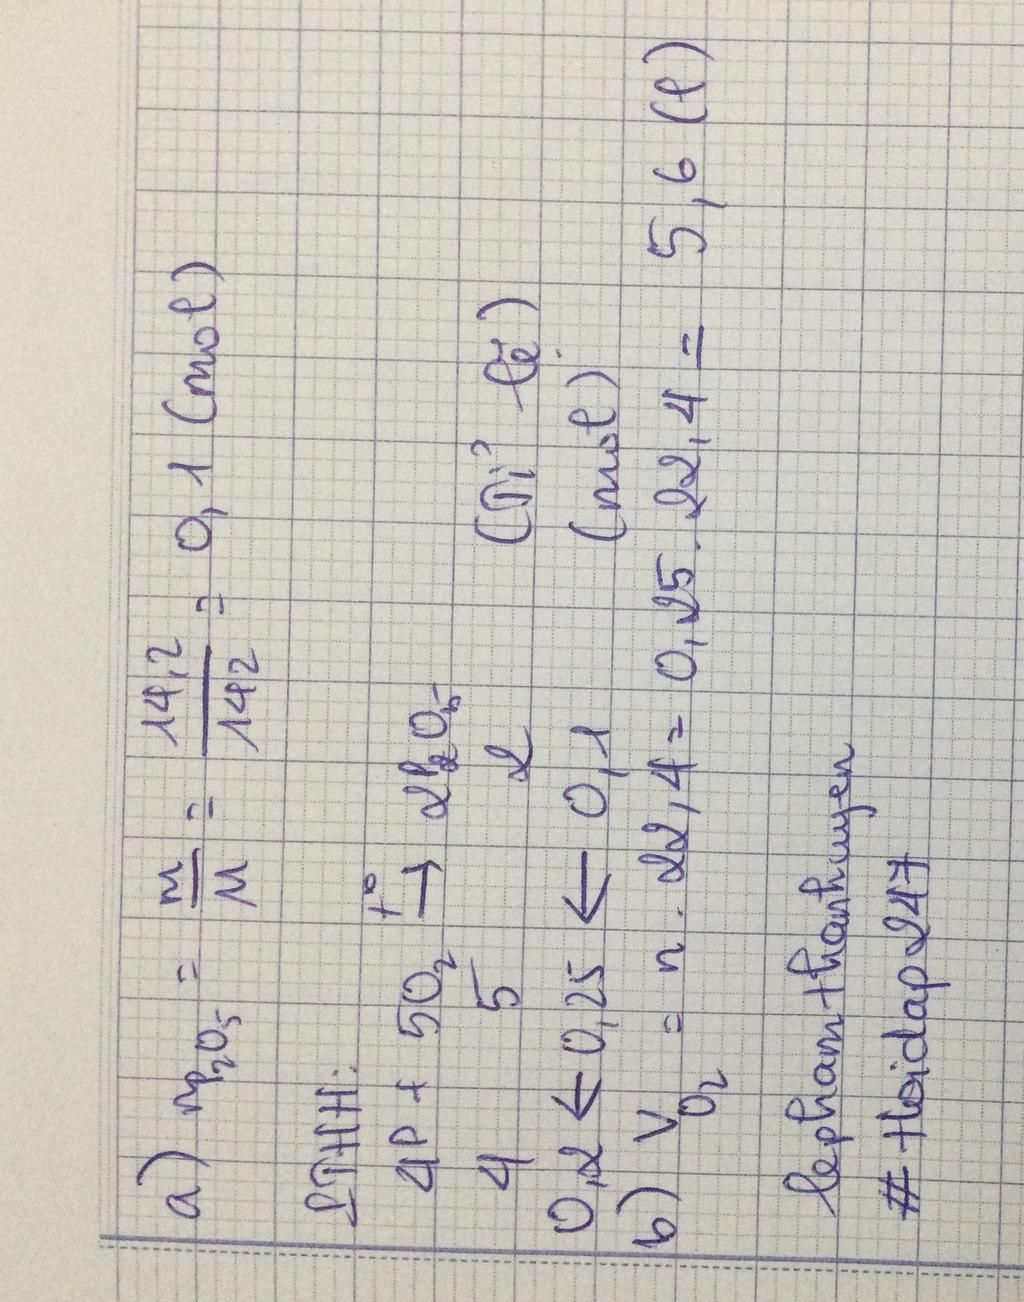 a) nP₂O₅ = m/M = 14,2/142 = 0,1 (mol)
PTHH:
4P + 5O₂ t° → 2P₂O₅
4 5 2 (Tỉ lệ)
0,2 ← 0,25 ← 0,1 (mol)
b) V O₂ = n . 22,4 = 0,25 . 22,4 = 5,6 (l)
lephamthanhhuyen
# Hoidap247